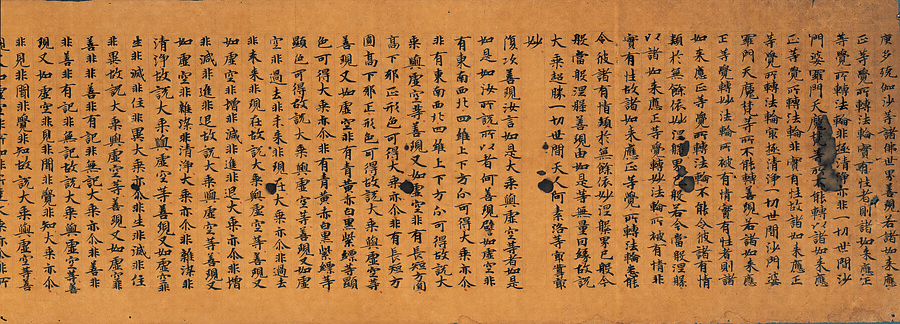 廣多殑伽沙等諸佛世界善現若諸如來應
正等覺所轉法輪是實有性者則諸如來應正
等覺所轉法輪非極清淨亦非一切世間沙
門婆羅門天魔梵等所不能轉以諸如來應
正等覺所轉法輪非實有性故諸如來應正
等覺所轉法輪最極清淨一切世間沙門婆
羅門天魔梵等所不能轉善現若諸如來應
正等覺轉妙法輪所被有情實有性者則諸
如來應正等覺所轉法輪不能令彼諸有情
類於無餘依妙涅槃界已般若今當般涅槃
以諸如來應正等覺轉妙法輪所被有情非
實有性故諸如來應正等覺所轉法輪悉能
令彼諸有情類於無餘依妙涅槃界已般今
般當般涅槃善現由如是等無量因緣故說
大乘超勝一切世間天人阿素洛等最尊最
妙
復次善現汝言如是大乘與虛空等者如是
如是如汝所說所以者何善現譬如虛空非
有東南西北四維上下方分可得大乘亦尒
非有東南西北四維上下方分可得故說大
乘與虛空等善現又如虛空非有長短方圓
高下邪正形色可得大乘亦尒非有長短方
圓高下邪正形色可得故說大乘與虛空等
善現又如虛空非有青黃赤白黑紫縹等顯
色可得大乘亦尒非有青黃赤白黑紫縹等
顯色可得故說大乘與虛空等善現又如虛
空非過去非未來非現在大乘亦尒非過去
非未來非現在故說大乘與虛空等善現又
如虛空非增非減非進非退大乘亦尒非增
非減非進非退故說大乘與虛空等善現又
如虛空非雜染非清淨大乘亦尒非雜染非
清淨故說大乘與虛空等善現又如虛空非
生非滅非住非異大乘亦尒非生非滅非住
非異故說大乘與虛空等善現又如虛空非
善非非善非有記非無記大乘亦尒非善非
非善非有記非無記故說大乘與虛空等善
現又如虛空非見非聞非覺非知大乘亦尒
非見非聞非覺非知故說大乘與虛空等善